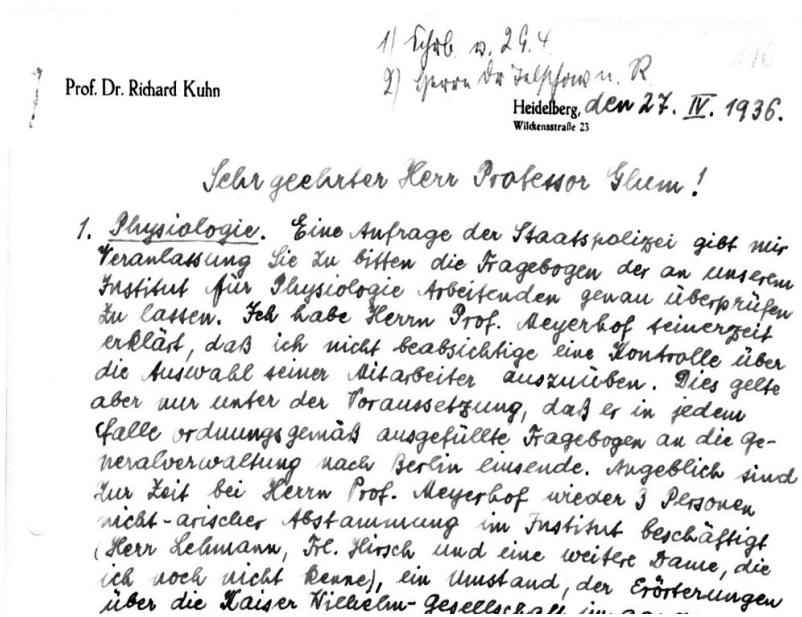 1) Schrb. v. 29.4.
2) Herrn Dr Telschow u. R.
Prof. Dr. Richard Kuhn
Heidelberg, den 27. IV. 1936.
Wilckensstraße 23
Sehr geehrter Herr Professor Glum!
1. Physiologie. Eine Anfrage der Staatspolizei gibt mir
Veranlassung Sie zu bitten die Fragebogen der an unserem
Institut für Physiologie Arbeitenden genau überprüfen
zu lassen. Ich habe Herrn Prof. Meyerhof seinerzeit
erklärt, daß ich nicht beabsichtige eine Kontrolle über
die Auswahl seiner Mitarbeiter auszuüben. Dies gelte
aber nur unter der Voraussetzung, daß er in jedem
Falle ordnungsgemäß ausgefüllte Fragebogen an die Ge-
neralverwaltung nach Berlin einsende. Angeblich sind
zur Zeit bei Herrn Prof. Meyerhof wieder 3 Personen
nicht-arischer Abstammung im Institut beschäftigt
(Herr Lehmann, Frl. Hirsch und eine weitere Dame, die
ich noch nicht kenne), ein Umstand, der Erörterungen
über die Kaiser Wilhelm-Gesellschaft im